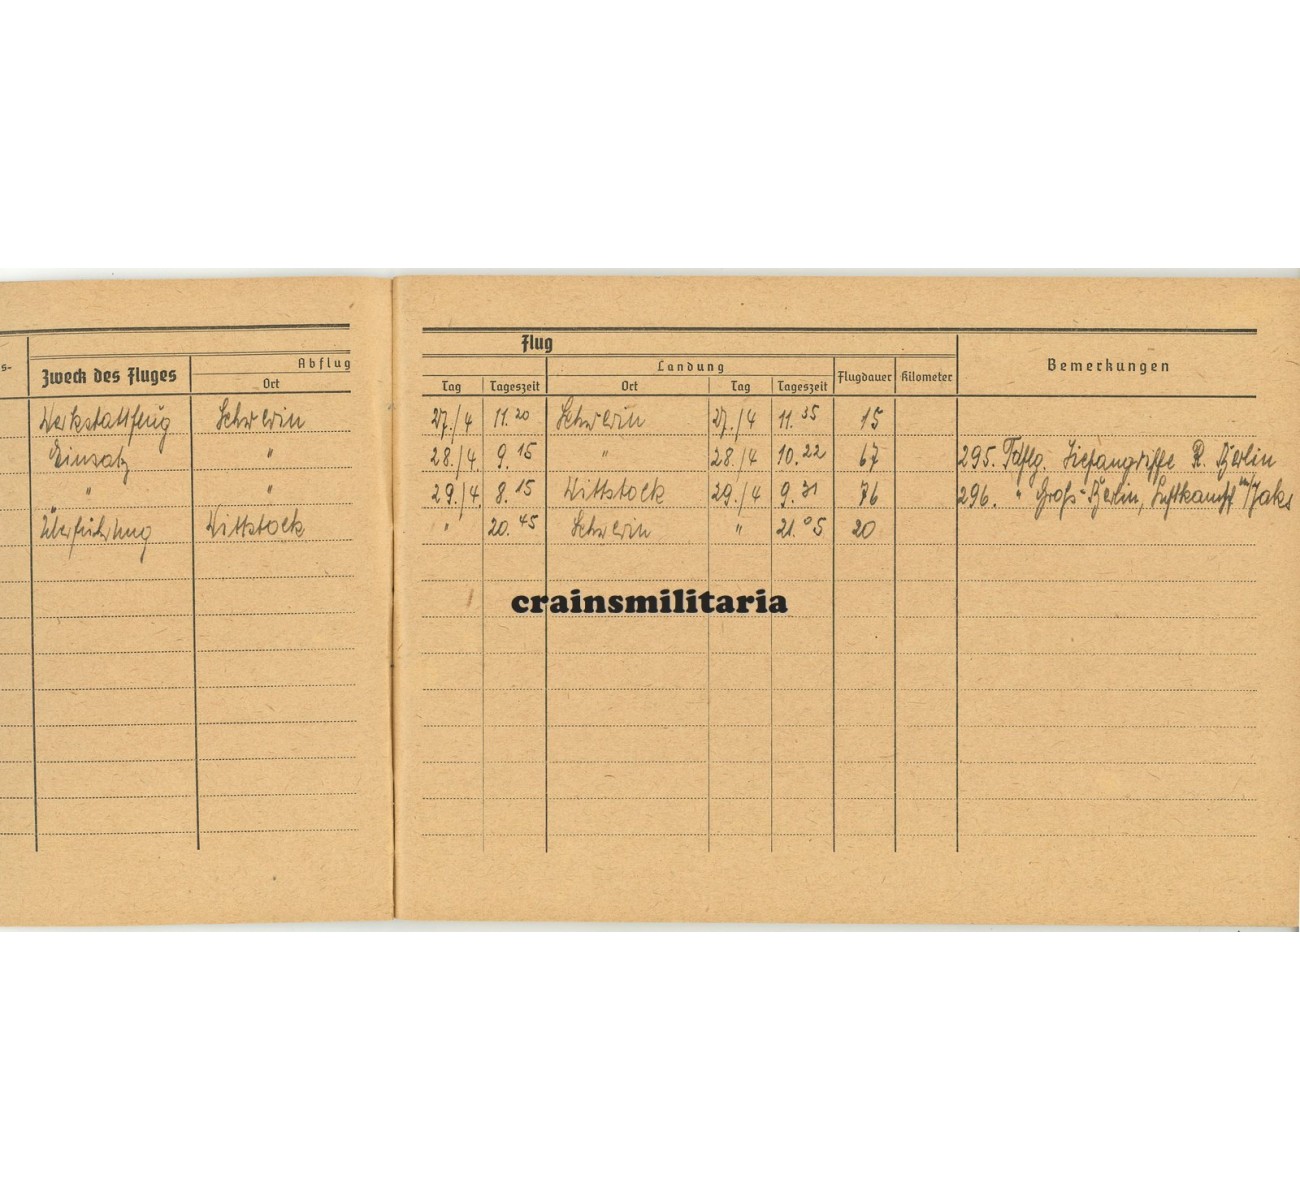 Flug
s- Zweck des Fluges Abflug Landung Flugdauer Kilometer Bemerkungen
Ort Tag Tageszeit Ort Tag Tageszeit
Werkstattflug Schwerin 27./4 11.20 Schwerin 27./4 11.35 15
Einsatz " 28./4. 9.15 " 28./4 10.22 67 295. Fdflg. Tiefangriffe R. Berlin
" " 29./4 8.15 Wittstock 29./4 9.31 76 296. " Groß-Berlin, Luftkampf m/Jaks
Überführung Wittstock " 20.45 Schwerin " 21.05 20
crainsmilitaria